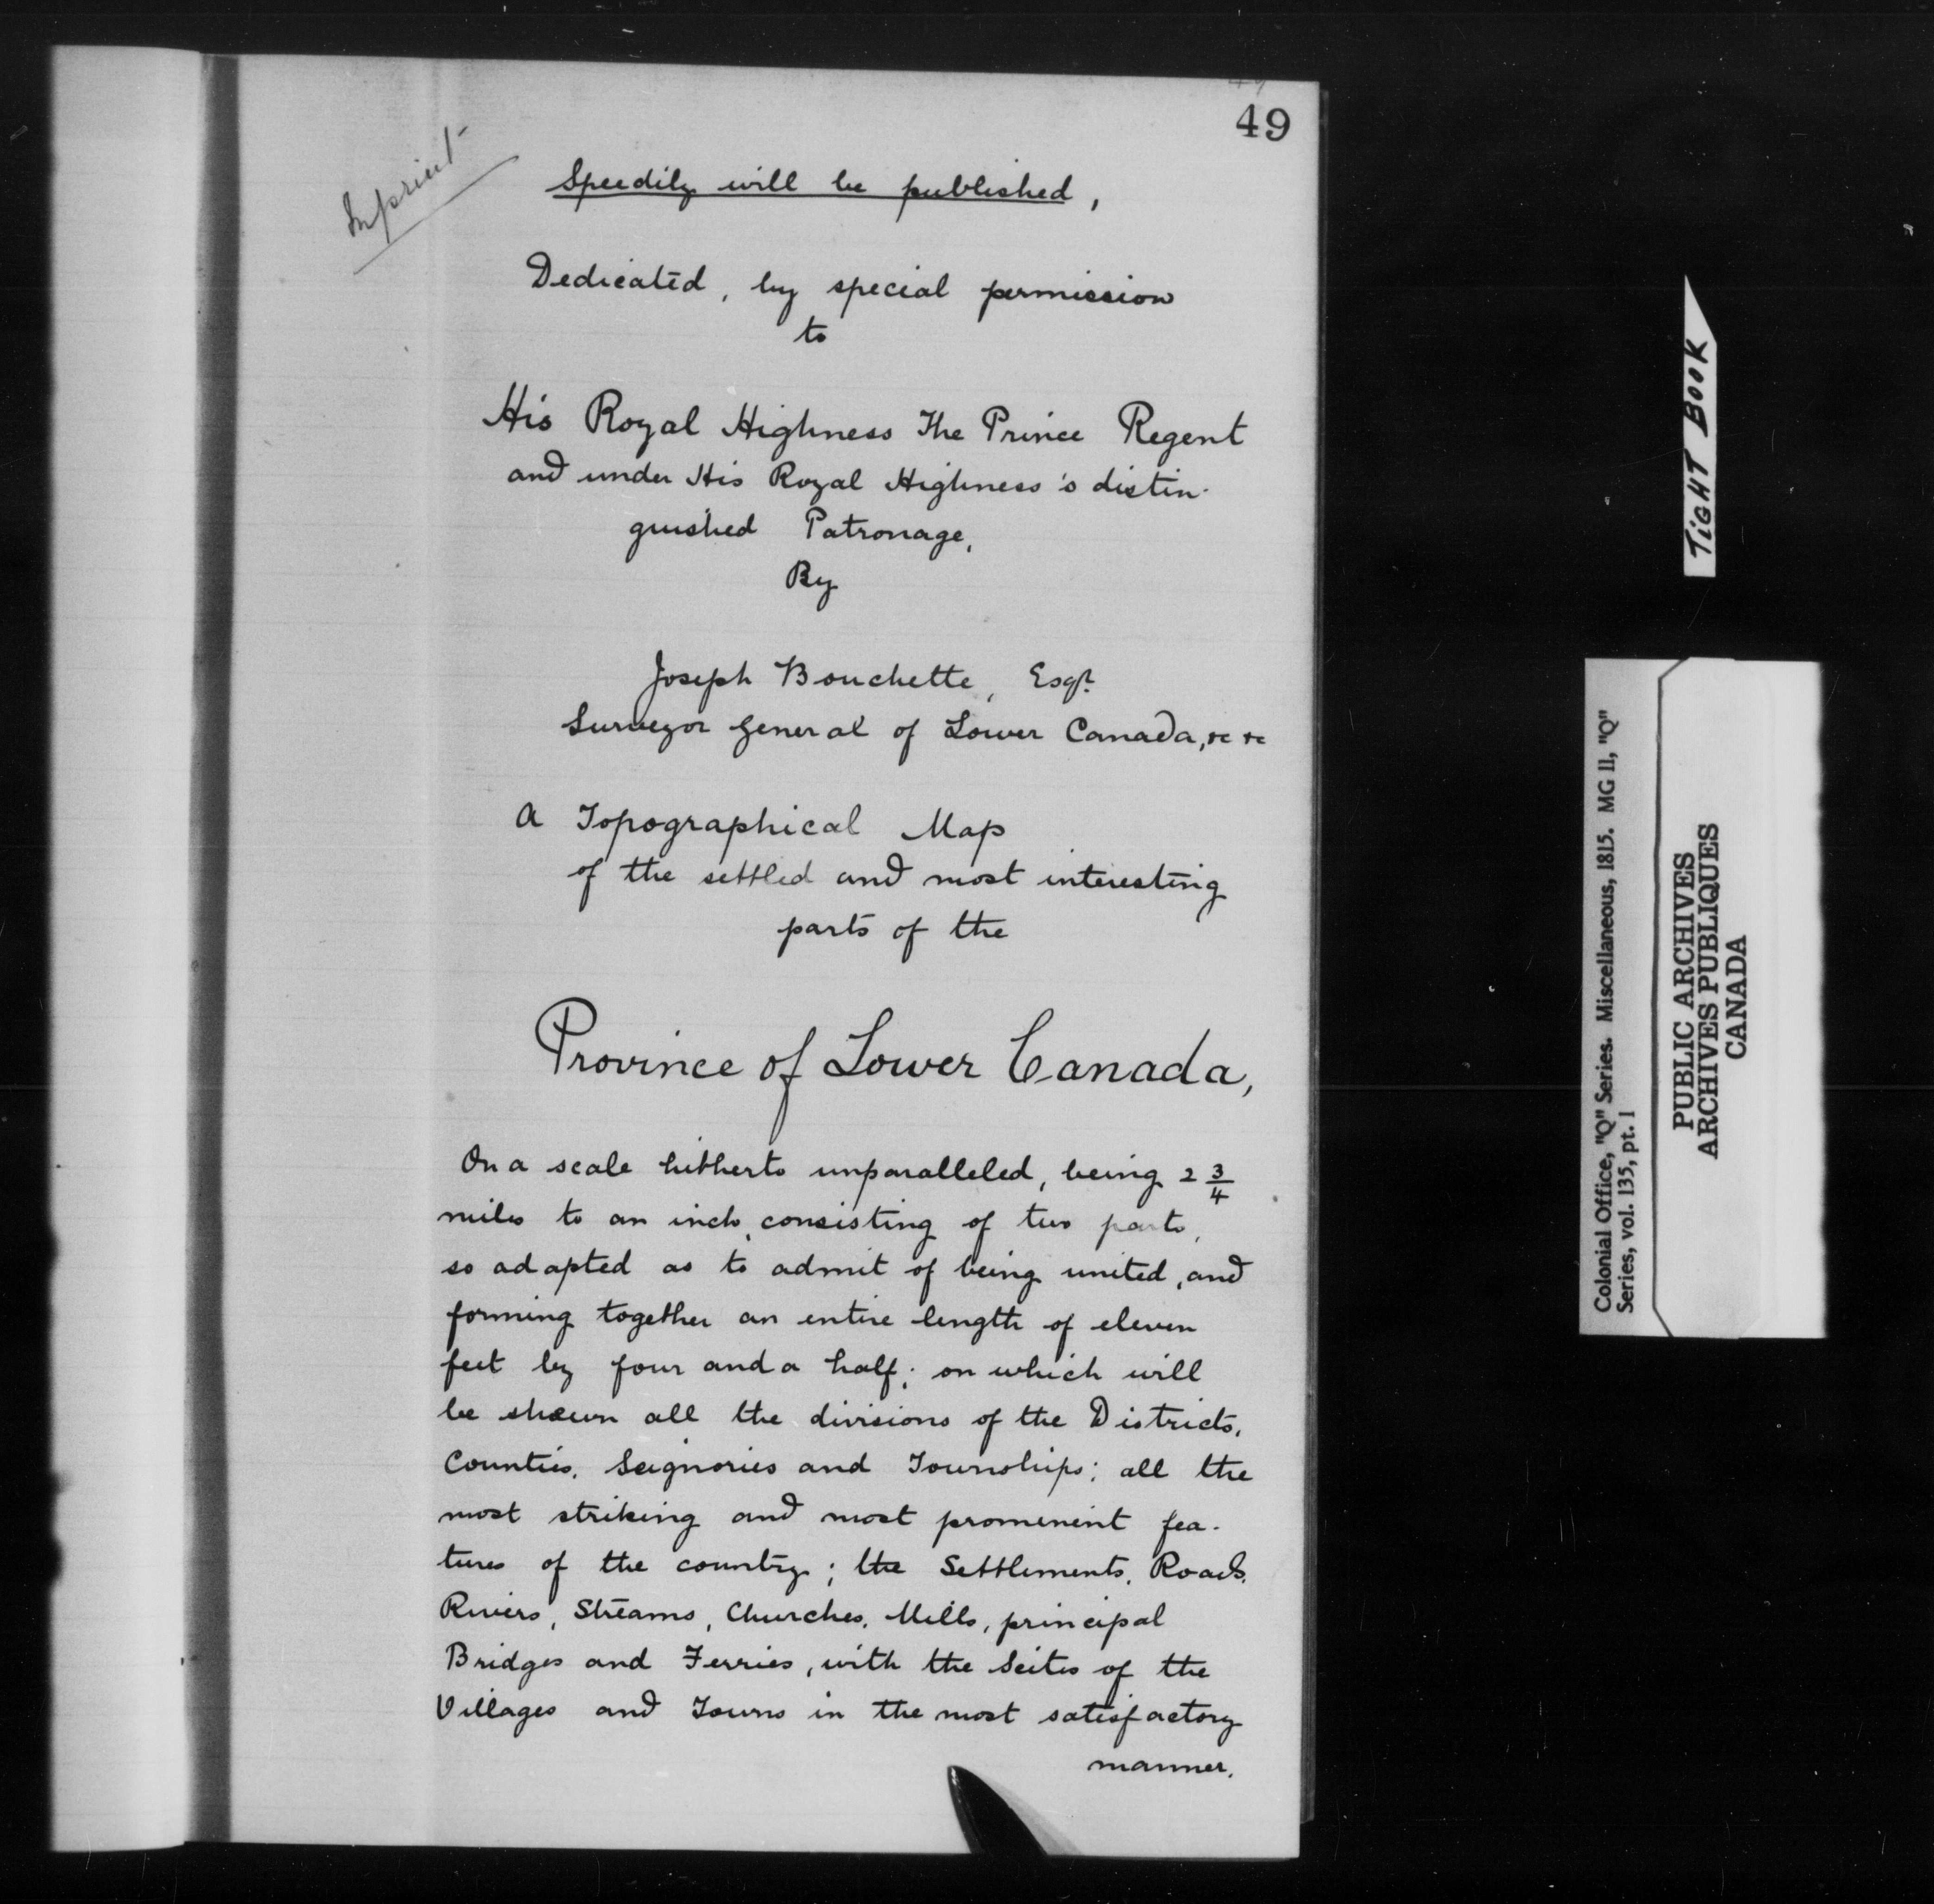 49
Inprint
Speedily will be published,
Dedicated, by special permission
to
His Royal Highness The Prince Regent
and under His Royal Highness's distin-
guished Patronage,
By
Joseph Bouchette, Esqr.
Surveyor General of Lower Canada, &c &c
A Topographical Map
of the settled and most interesting
parts of the
Province of Lower Canada,
On a scale hitherto unparalleled, being 2 3/4
miles to an inch, consisting of two parts,
so adapted as to admit of being united, and
forming together an entire length of eleven
feet by four and a half; on which will
be shewn all the divisions of the Districts,
Counties, Seignories and Townships; all the
most striking and most prominent fea-
tures of the country; the Settlements, Roads,
Rivers, Streams, Churches, Mills, principal
Bridges and Ferries, with the Seites of the
Villages and Towns in the most satisfactory
manner.
TIGHT BOOK
Colonial Office, "Q" Series. Miscellaneous, 1815. MG 11, "Q"
Series, vol. 135, pt. 1
PUBLIC ARCHIVES
ARCHIVES PUBLIQUES
CANADA